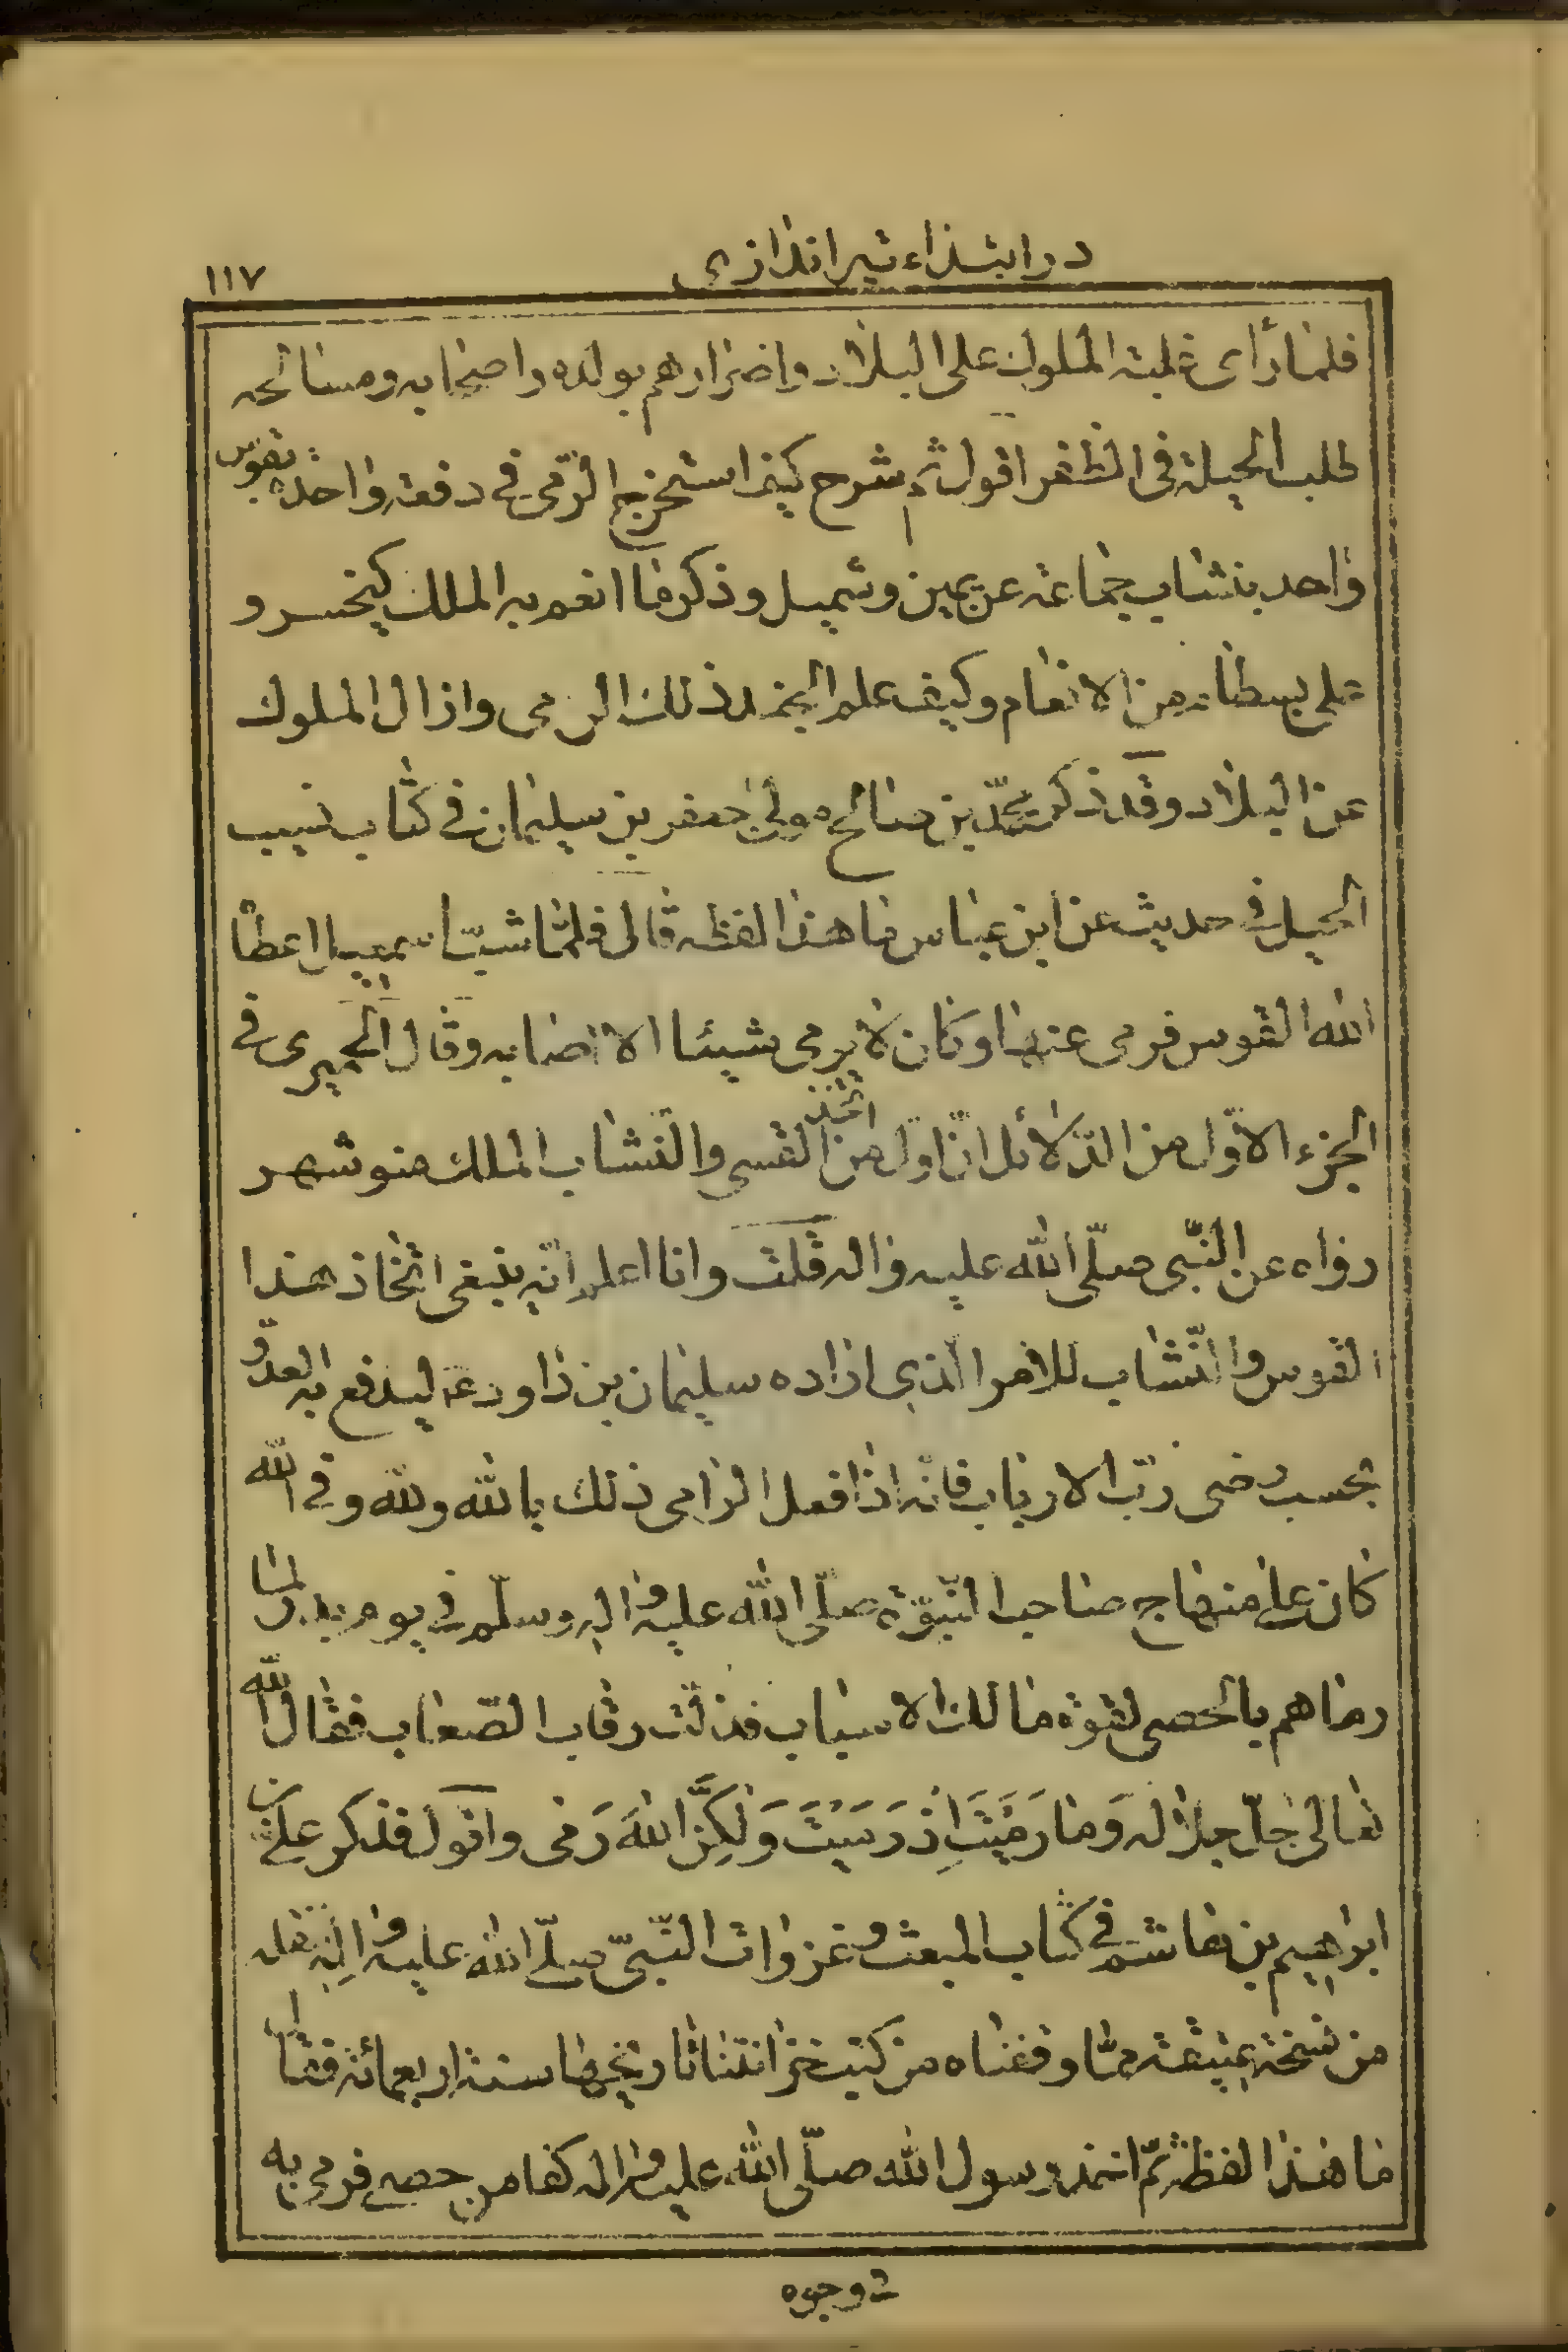 در ابتداء تیراندازی
١١٧
فلما رأى غلبة الملوك على البلاد واضرارهم بولده واصحابه ومسالحه
طلب الحيلة فى الظفر اقول ثم شرح كيف استخرج الرّمى فى دفعة واحدة بقوس
واحد بنشاب جماعة عن يمين وشميل وذكر ما انعم به الملك كيخسرو
على بسطام من الانعام وكيف علم الجند ذلك الرمى وازال الملوك
عن البلاد وقد ذكر محمّد بن صالح مولى جعفر بن سليمان فى كتاب نسب
الخيل فى حديث عن ابن عباس ما هذا لفظه قال فلمّا شبّ اسمعيل اعطاه
الله القوس فرمى عنها وكان لا يرمى شيئا الا اصابه وقال الحميرى فى
الجزء الاوّل من الدّلائل انّ اوّل من اتّخذ القسى والنشاب الملك منوشهر
رواه عن النّبى صلّى الله عليه واله قلت وانا اعلم انّه ينبغى اتّخاذ هذا
القوس والنّشاب للامر الذى اراده سليمان بن داود ع ليدفع به العدوّ
بحسب رضى ربّ الارباب فانّه اذا فعل الرامى ذلك بالله ولله وفى الله
كان على منهاج صاحب النّبوّة صلّى الله عليه واله وسلّم فى يوم بدر لمّا
رماهم بالحصى لقوة مالك الاسباب فذلّت رقاب الصّعاب فقال الله
تعالى جلّ جلاله وَما رَمَيْتَ اِذْ رَمَيْتَ وَلكِنَّ اللهَ رَمى واقول فذكر علىّ بن
ابراهيم بن هاشم فى كتاب المبعث وغزوات النّبىّ صلّى الله عليه واله نقله
من نسخة عتيقة ممّا وقفناه من كتب خزانتنا تاريخها سنة اربعمائة فقال
ما هذا لفظه ثمّ اخذ رسول الله صلّى الله عليه واله كفا من حصى فرمى به
وجوه